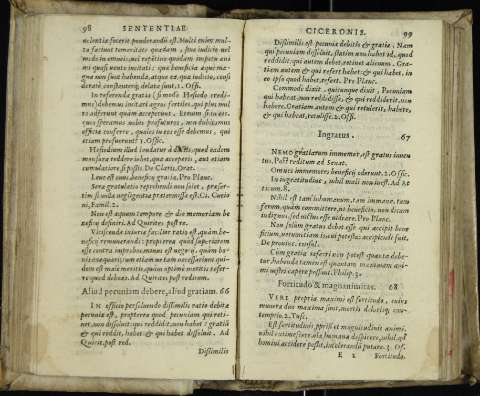 98 SENTENTIAE
uolentiae facerit ponderandi est. Multi enim mul
ta faciunt temeritate quadam, sine iudicio uel
modo in omneis, uel repentino quodam impetu ani
mi quasi uento incitati: quae beneficia aequè ma-
gna non sunt habenda, atque ea, quae iudicio, consi
deratè, constanterq; delata sunt. 1. Offi.
In referenda gratia (si modo Hesiodo credi-
mus) debemus imitari agros fertiles, qui plus mul
to adferunt quàm acceperunt. Etenim si in eos
quos speramus nobis profuturos, non dubitamus
officia conferre, quales in eos esse debemus, qui
etiam profuerunt? 1. Offic.
Hesiodum illud laudatur à doctis, quod eadem
mensura reddere iubet, qua acceperis, aut etiam
cumulatiore si possis. De Claris. Orat.
Leue est onus beneficij gratia. Pro Planc.
Sera gratulatio reprehendi non solet, praeser-
tim si nulla negligentia praetermissa est. Ci. Curio
ni, Famil. 2.
Non est aequum tempore & die memoriam be
neficij definiri. Ad Quirites post re.
Vlciscendae iniuriae facilior ratio est, quàm be-
neficij remunerandi: propterea quòd superiorem
esse contra improbos, minus est negotij, quàm bo-
nis exaequari: tum etiam ne tam necessarium qui-
dem est male meritis, quàm optimè meritis refer-
re quod debeas. Ad Quirites post reditum.
Aliud pecuniam debere, aliud gratiam. 66
IN officio persoluendo dissimilis ratio debitae
pecuniae est, propterea quòd pecuniam qui reti-
net, non dissoluit: qui reddidit, non habet: gratiã
& qui reddit, habet: & qui habet dissoluit. Ad
Quirit. post red.
Dissimilis
CICERONIS. 99
Dissimilis est pecuniae debitio & gratiae: Nam
qui pecuniam dissoluit, statim non habet id, quod
reddidit: qui autem debet, retinet alienum. Gra-
tiam autem & qui refert habet: & qui habet, in
eo ipso quod habet, refert. Pro Planc.
Commodè dixit, quicunque dixit, Pecuniam
qui habeat, non reddidisse, & qui reddiderit, non
habere. Gratiam autem & qui retulerit, habere,
& qui habeat, retulisse. 2. Offic.
Ingratus. 67
NEMO gratiarum immemor, est gratus inuen
tus. Post reditum ad Senat.
Omnes immemorem beneficij oderunt. 2. Offic.
In ingratitudine, nihil mali non inest. Ad At
ticum. 8.
Nihil est tam inhumanum, tam immane, tam
ferum, quàm committere, ut beneficio, non dicam
indignus, sed uictus esse uideare. Pro Planc.
Non solum gratus debet esse qui accipit bene
ficium, uerumetiam is cui potestas accipiendi fuit.
De prouinc. consul.
Cum gratia referri non potest quanta debe-
tur, habenda tamen est quantam maximam ani-
mi nostri capere possunt. Philip. 3.
Fortitudo & magnanimitas. 68
VIRI propria maximè est fortitudo, cuius
munera duo maxima sunt, mortis dolorisq; con-
temptio. 2. Tusc.
Est fortitudinis, proprij et magnitudinis animi,
nihil extimescere, oĩa humana despicere, nihil qd
homini accidere possit, intolerandũ putare. 3. Of.
E 2 Fortitudo.